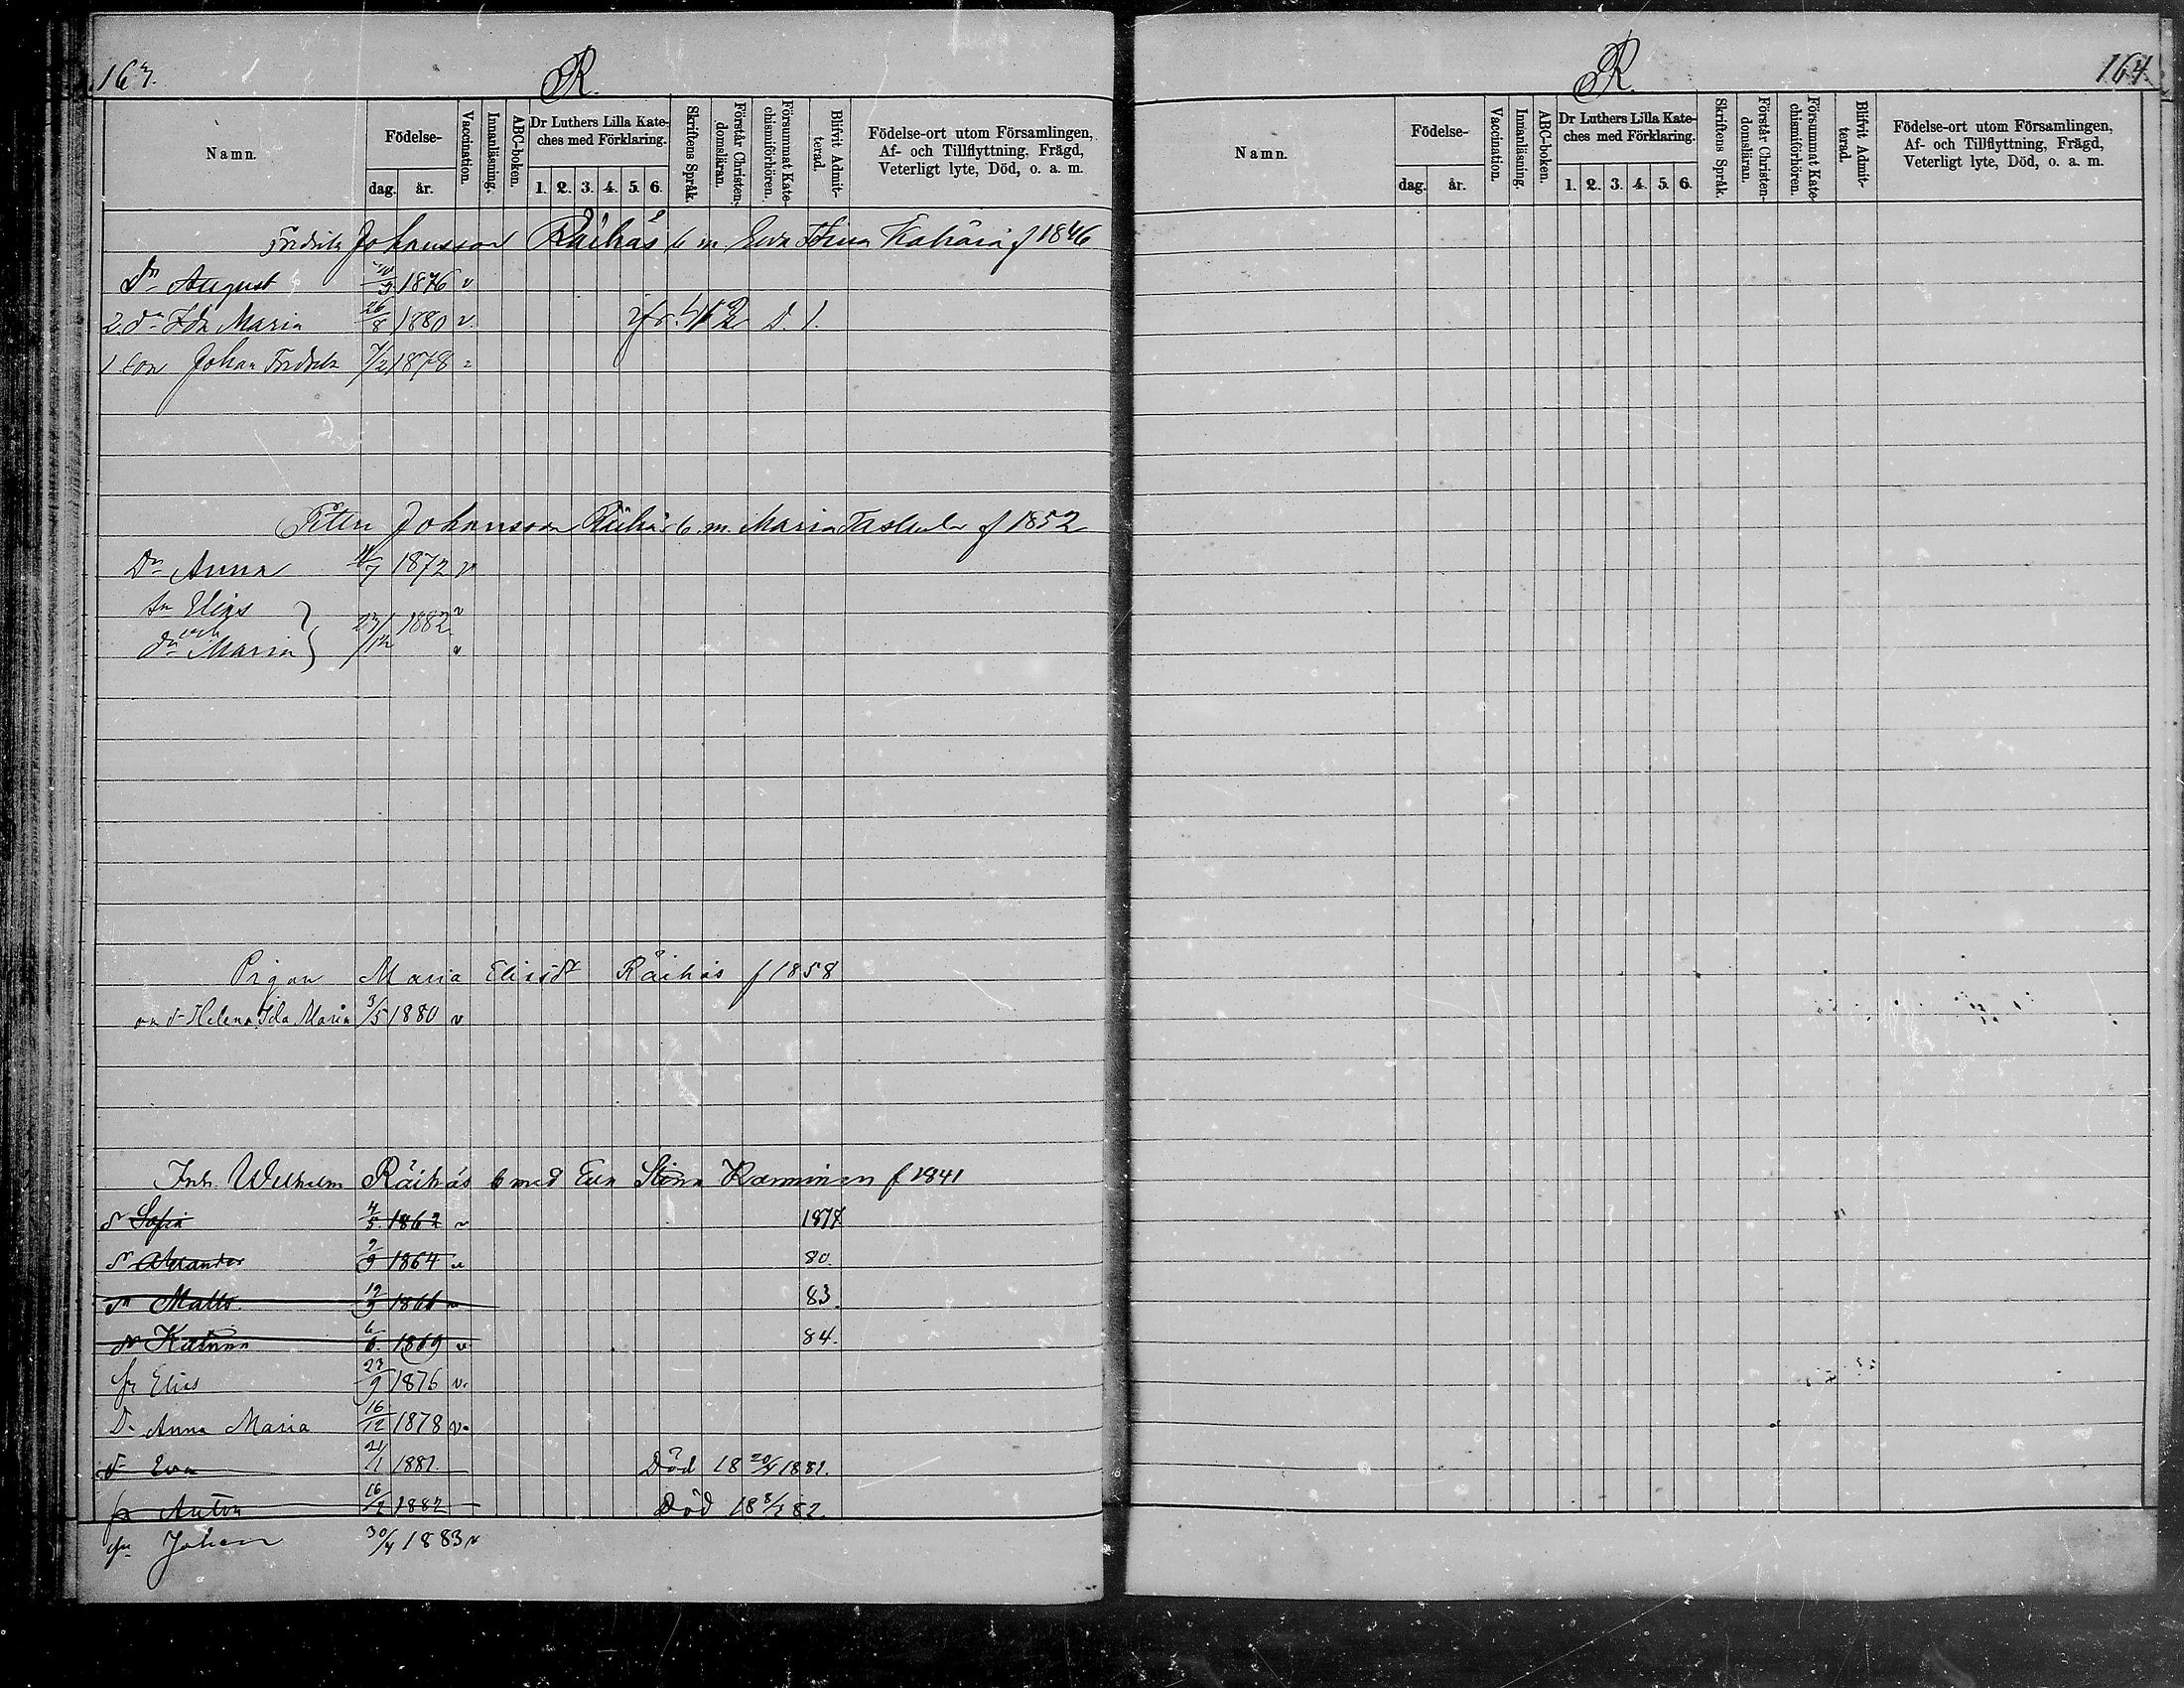 163.
R.
Namn.
Födelse-
dag.
år.
Vaccination.
Innanläsning.
ABC-boken.
Dr Luthers Lilla Kate-
ches med Förklaring.
1. 2. 3. 4. 5. 6.
Skriftens Språk.
Förstår Christen-
domsläran.
Försummat Kate-
chismiförhören.
Blifvit Admit-
terad.
Födelse-ort utom Församlingen,
Af- och Tillflyttning, Frägd,
Veterligt lyte, Död, o. a. m.
Fredrik Johansson Räihäs m Eva Stina f 1846
August 1876 v
2. dr Ida Maria 26/8 1880 v.
1 son Johan Fredrik 7/2 1878
Johansson Räihäs b. m. Maria f 1852
Dr Anna 11/7 1872 v
sn Elias 1882 v
och
dr Maria v
Pigan Maria Elisdr Räihäs f 1858
oä dr Helena Ida Maria 3/5 1880 v
Inh. Wilhelm Räihäs b med Eva Stina f 1841
dr Sofia 4/5 1862 v 1877
Alexander 9/9 1864 v 80.
sn Matts 19/9 1866 v 83.
dr Katrina 6/6. 1869 v 84.
sn Elias 23/9 1876 v.
Dr Anna Maria 16/12 1878 v.
dr Eva 21/1 1881. Död 18 20/4 1881.
sn Anton 16/2 1882 Död 18 82.
sn Johan 30/4 1883 v
R.
164.
Namn.
Födelse-
dag.
år.
Vaccination.
Innanläsning.
ABC-boken.
Dr Luthers Lilla Kate-
ches med Förklaring.
1. 2. 3. 4. 5. 6.
Skriftens Språk.
Förstår Christen-
domsläran.
Försummat Kate-
chismiförhören.
Blifvit Admit-
terad.
Födelse-ort utom Församlingen,
Af- och Tillflyttning, Frägd,
Veterligt lyte, Död, o. a. m.